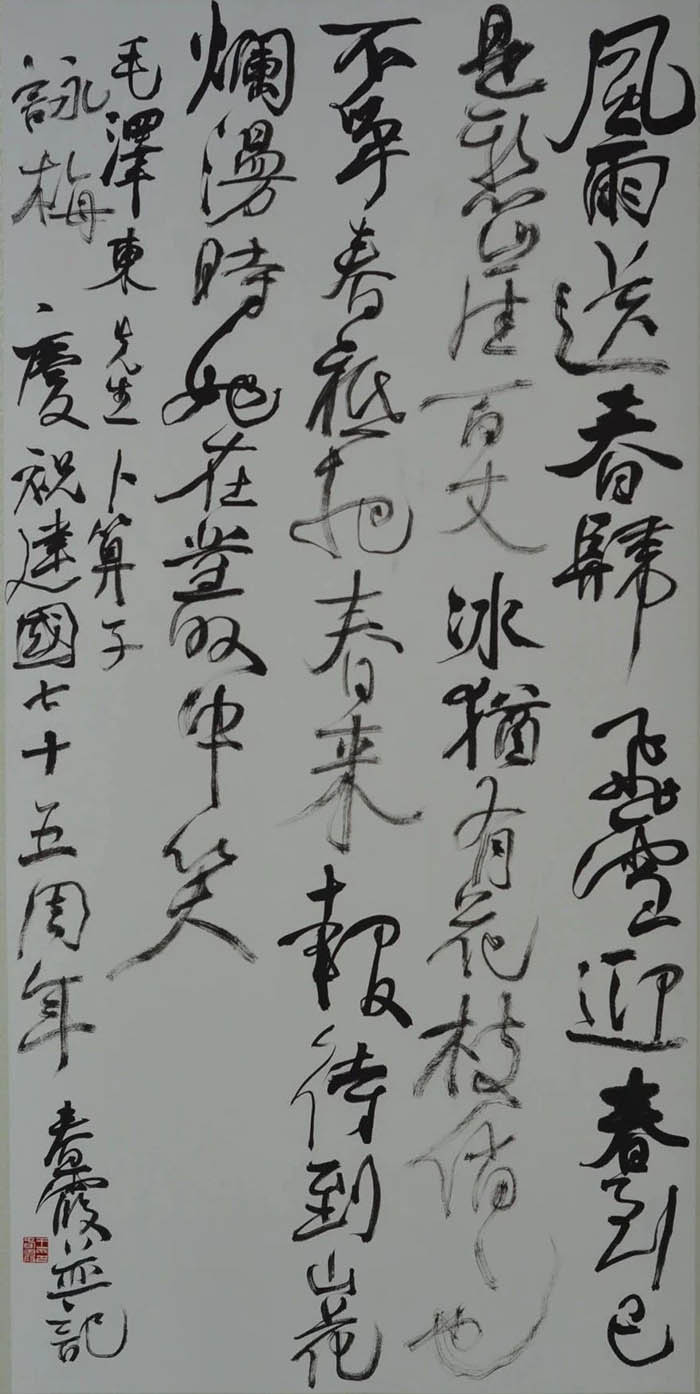 風雨送春歸飛雪迎春到已
是懸崖百丈冰猶有花枝俏々也
不爭春祇把春来報待到山花
爛漫時她在叢中笑
毛澤東先生卜算子
詠梅 慶祝建國七十五周年 春霞並記